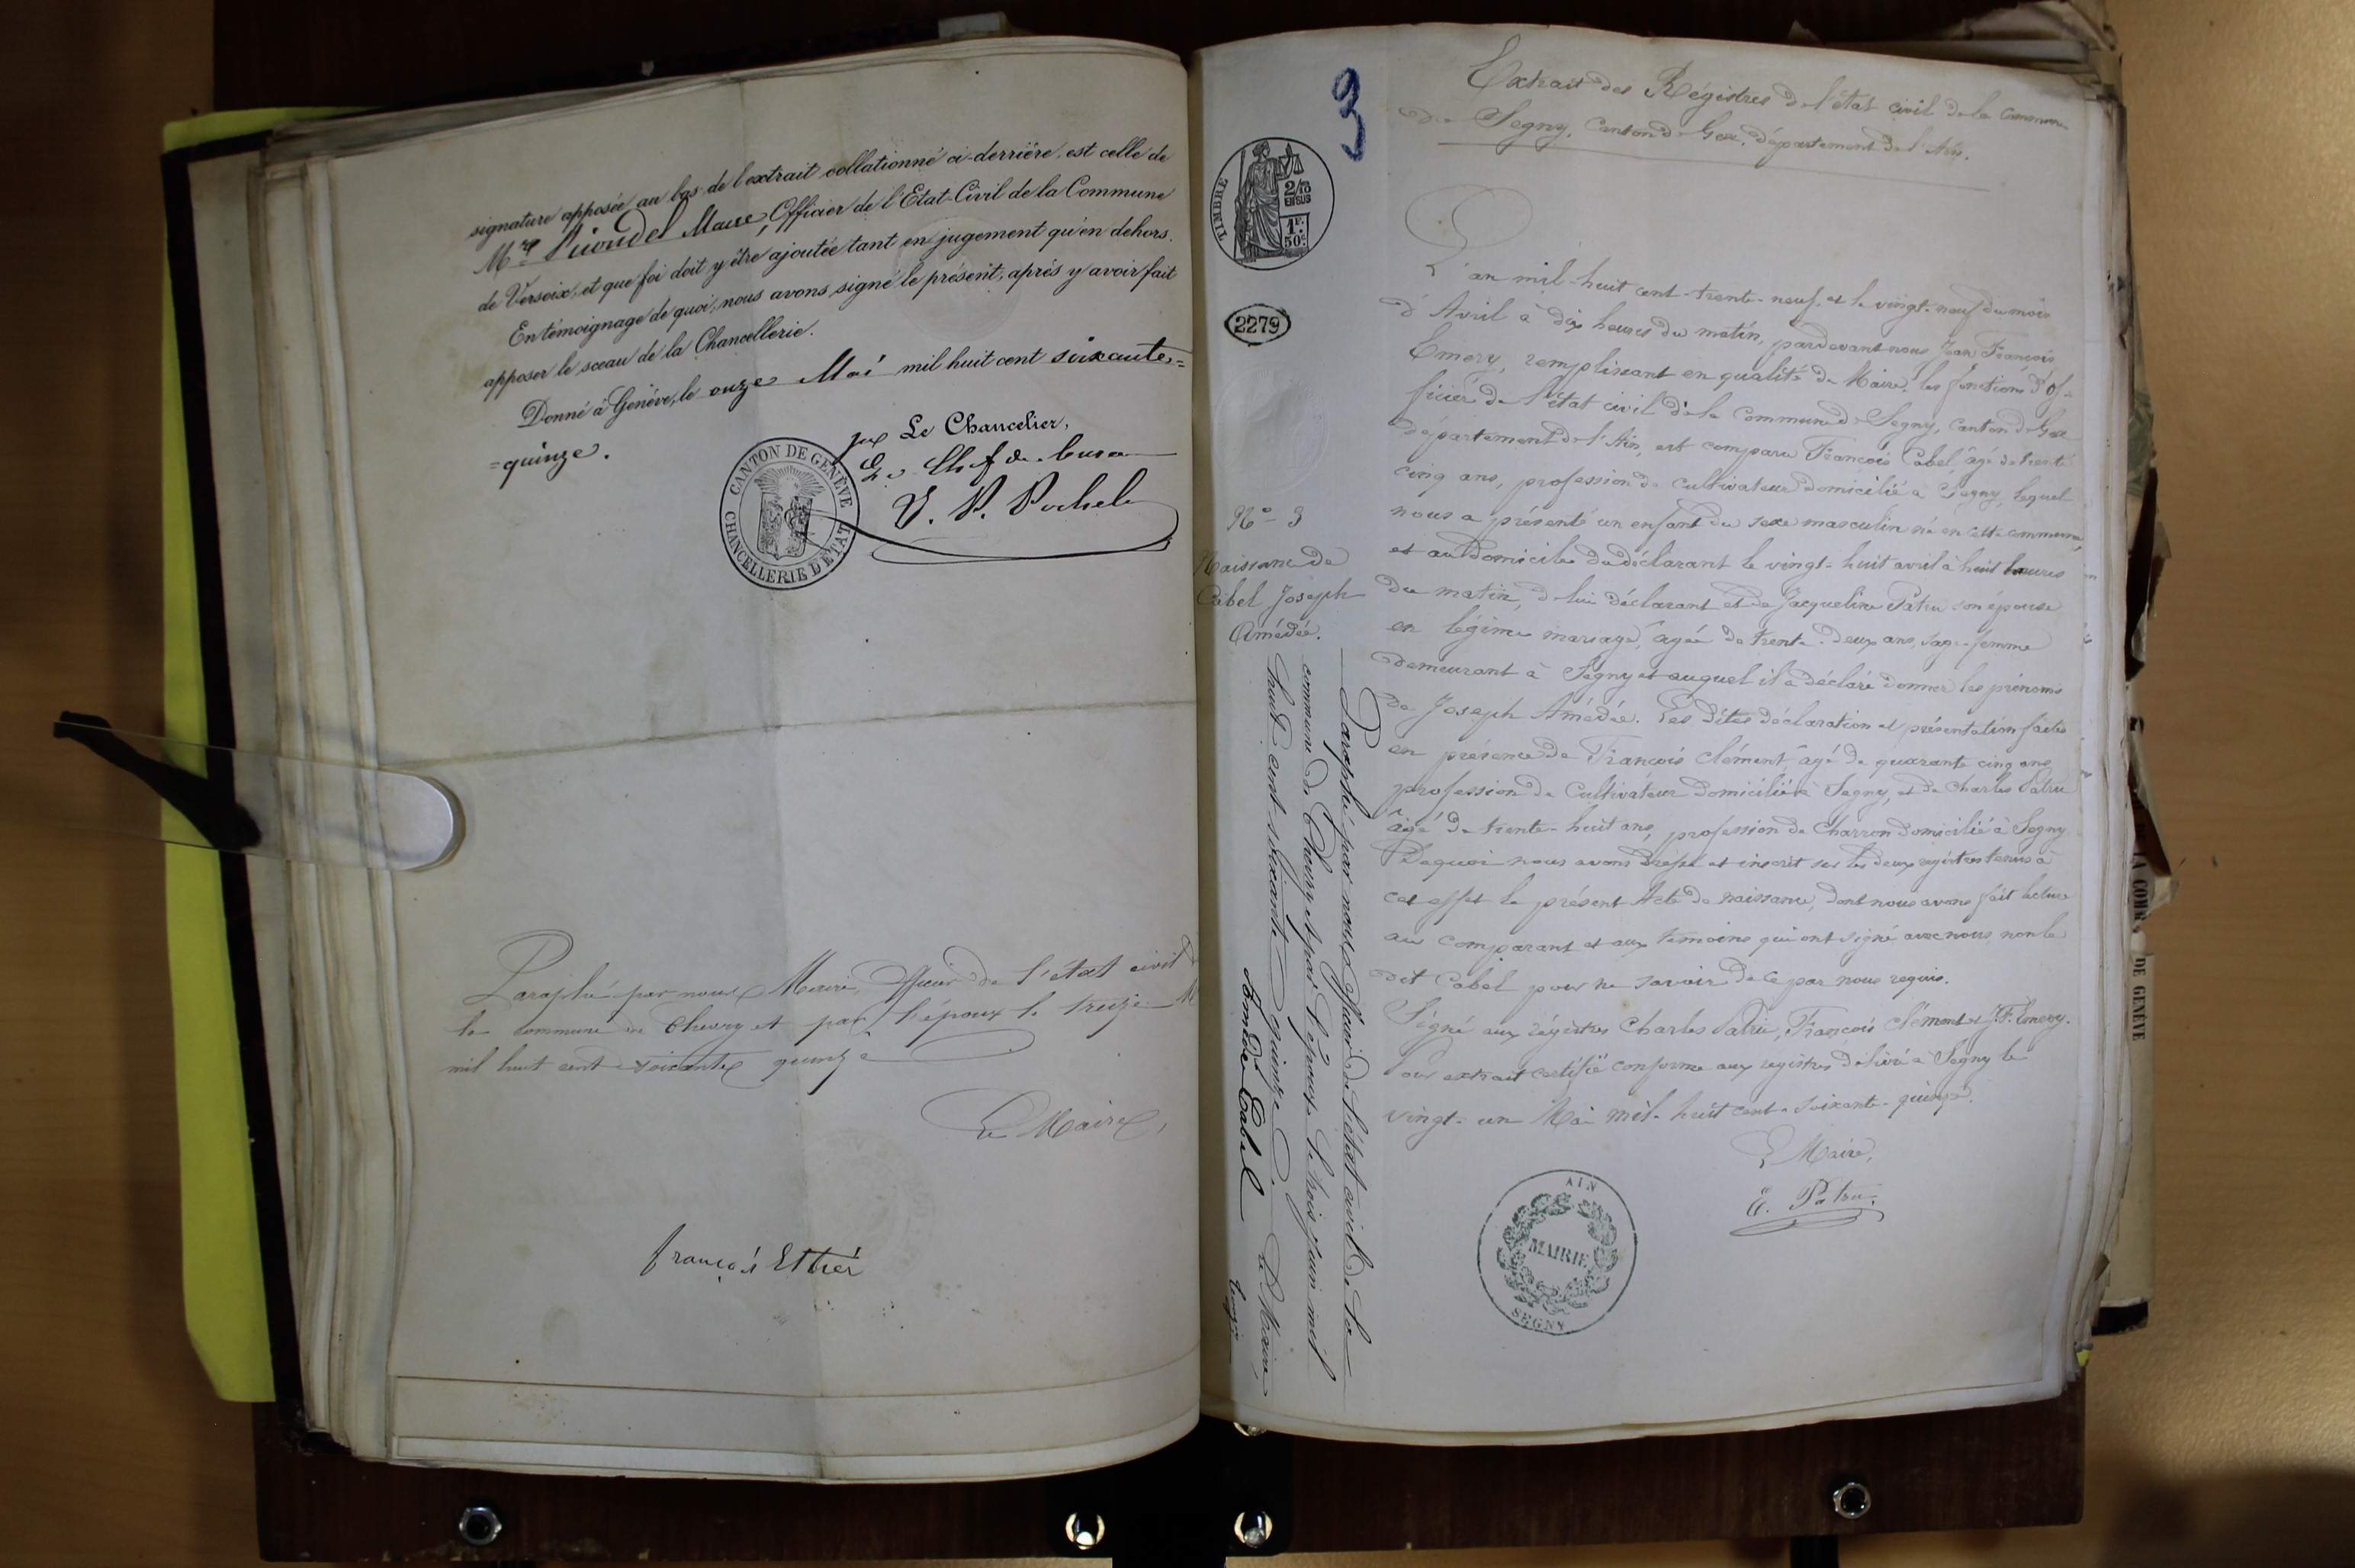 signature apposée au bas de l'extrait collationné ci-derrière, est celle de
Mr Maire, Officier de l'Etat-Civil de la Commune
de Versoix, et que foi doit y être ajoutée tant en jugement qu'en dehors.
En témoignage de quoi, nous avons signé le présent, après y avoir fait
apposer le sceau de la Chancellerie.
Donné à Genève, le onze Mai mil huit cent soixante=
=quinze.
Le Chancelier,
Le Chef de bureau
CANTON DE GENÈVE
CHANCELLERIE D'ÉTAT
Paraphé par nous Maire, Officier de l'état civil
la commune de Chevry et par l'époux le treize
mil huit cent soixante quinze
Le Maire,
3
TIMBRE
2/10
EN SUS
1F.
50c.
2279
No 3
Naissance de
Cabel Joseph
Amédée.
Paraphé par nous Maire de l'état civil de la
commune de Chevry et par l'époux le trois juin mil
huit cent soixante quinze.
Le Maire,
Amédée Cabel
Extrait des Régistres de l'état civil de la Commune
de Segny, Canton de Gex, département de l'Ain.
L'an mil-huit cent-trente-neuf et le vingt-neuf du mois
d'Avril à dix heures du matin, pardevant nous Jean François
Emery, remplissant en qualité de Maire, les fonctions d'of-
ficier de l'état civil de la Commune de Segny, Canton de Gex
département de l'Ain, est comparu François Cabel, âgé de trente
cinq ans, profession de cultivateur domicilié à Segny, lequel
nous a présenté un enfant du sexe masculin né en cette commune
et au domicile du déclarant le vingt-huit avril à huit heures
du matin, de lui déclarant et de Jacqueline Patru son épouse
en légime mariage, agée de trente-deux ans, sage-femme
demeurant à Segny et auquel il a déclaré donner les prénoms
de Joseph Amédée. Les dites déclaration et présentation faites
en présence de François Clément, âgé de quarante cinq ans,
profession de Cultivateur domicilié à Segny, et de Charles Patru
âgé de trente-huit ans, profession de Charron domicilié à Segny
De quoi nous avons dressé et inscrit sur les deux registres tenus à
cet effet le présent Acte de naissance, dont nous avons fait lecture
au comparant et aux témoins qui ont signé avec nous, non le
dit Cabel pour ne savoir de ce par nous requis.
Signé aux régistres Charles Patru, François Clément et J. F. Emery.
Pour extrait certifié conforme aux registres délivré à Segny le
vingt-un Mai mil-huit cent-soixante-quinze.
Le Maire,
E. Patru.
AIN
MAIRIE
SEGNY
DE GENÈVE